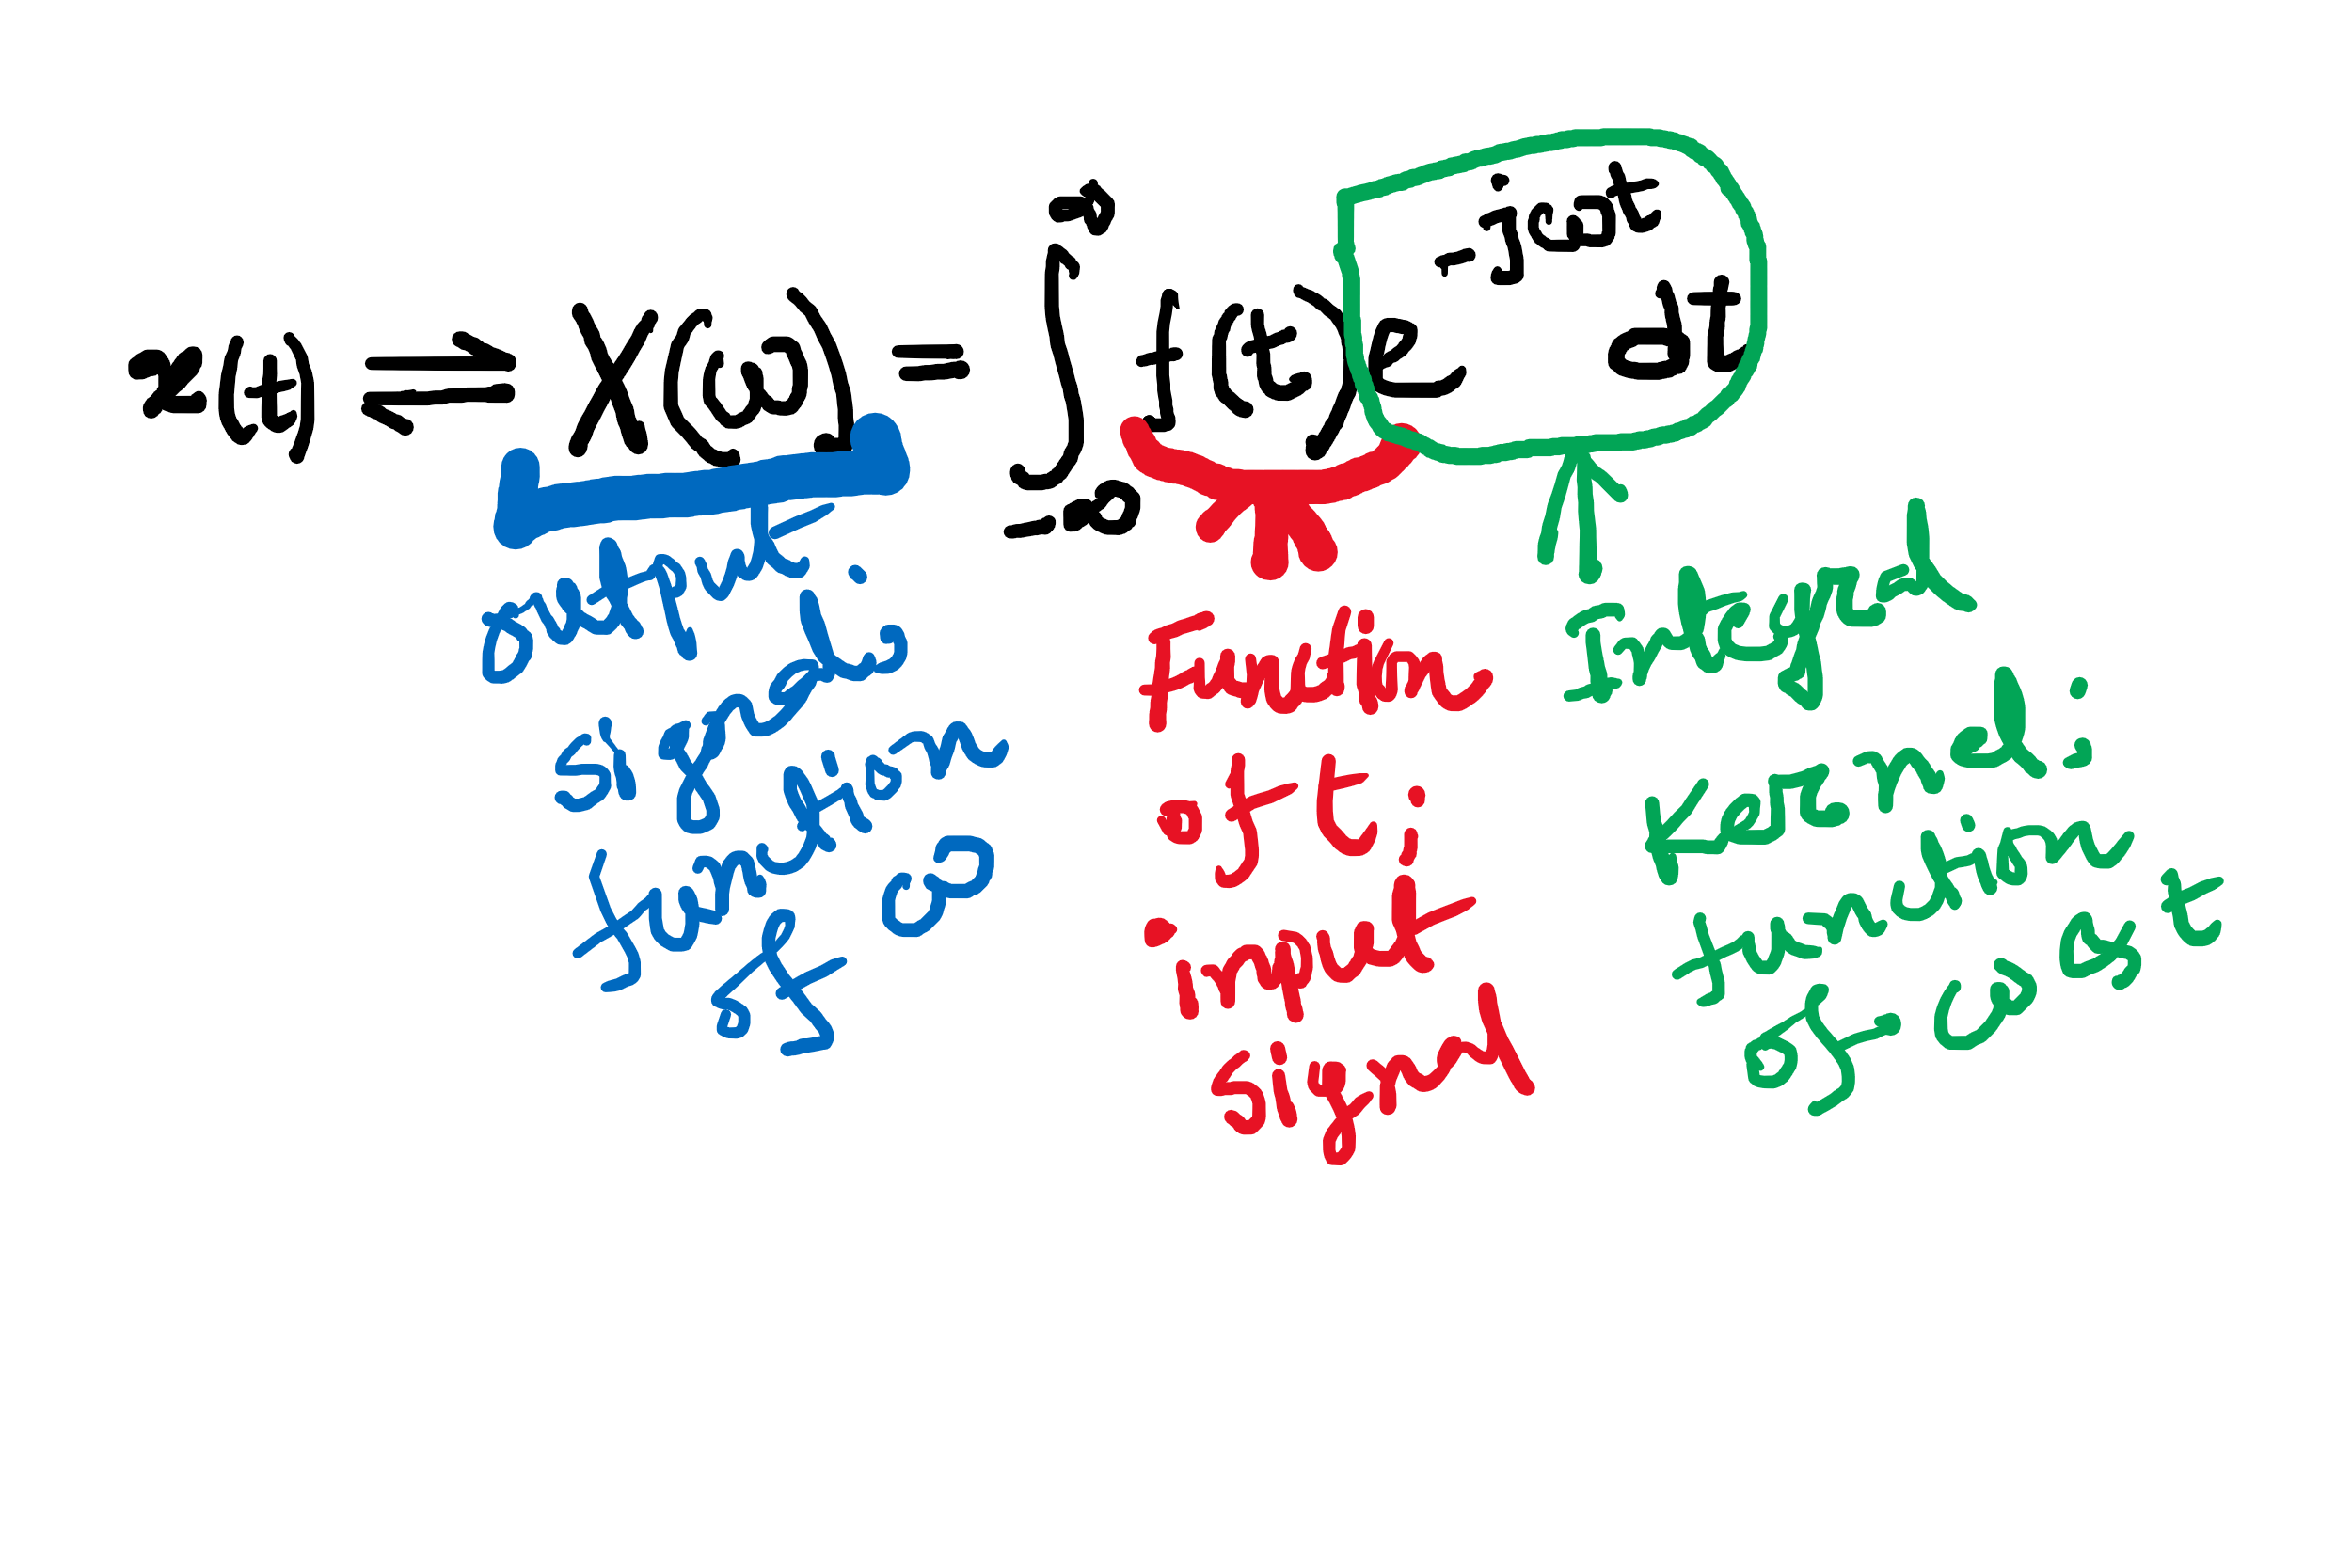 x(t) ⇌ X(ω) = ∫_{-∞}^{∞} f(t) e^{-jωt} dt
output;
signal is
function
of ω
Function
of t;
input
signal
integral
kernel;
function
of ω & t